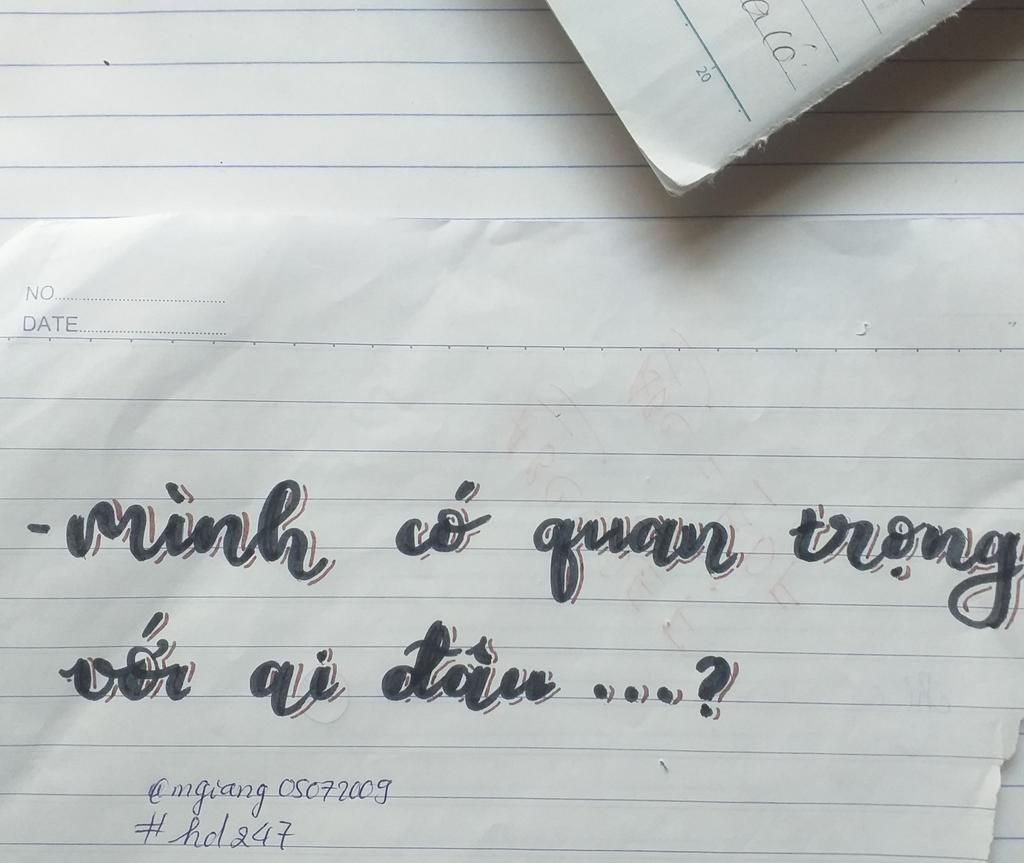 a có
20
NO
DATE
- mình có quan trọng
với ai đâu ....?
@mgiang05072009
#hd247